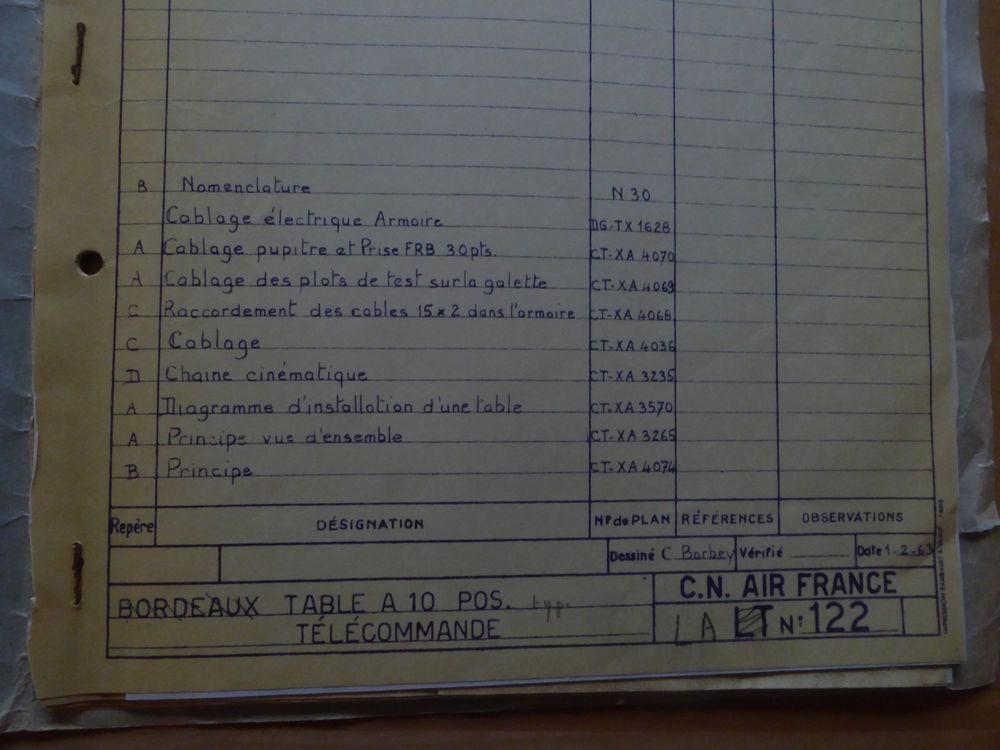 B Nomenclature N 30
Cablage électrique Armoire DG-TX 1628
A Cablage pupitre et Prise FRB 30pts. CT-XA 4070
A Cablage des plots de test sur la galette CT-XA 4069
C Raccordement des cables 15x2 dans l'armoire CT-XA 4068
C Cablage CT-XA 4036
D Chaine cinématique CT-XA 3235
A Diagramme d'installation d'une table CT-XA 3570
A Principe vue d'ensemble CT-XA 3265
B Principe CT-XA 4074
Repère DÉSIGNATION N° de PLAN RÉFÉRENCES OBSERVATIONS
Dessiné C. Barbey Vérifié Date 1-2-63
BORDEAUX TABLE A 10 POS. type
TÉLÉCOMMANDE
C.N. AIR FRANCE
LA LT N° 122